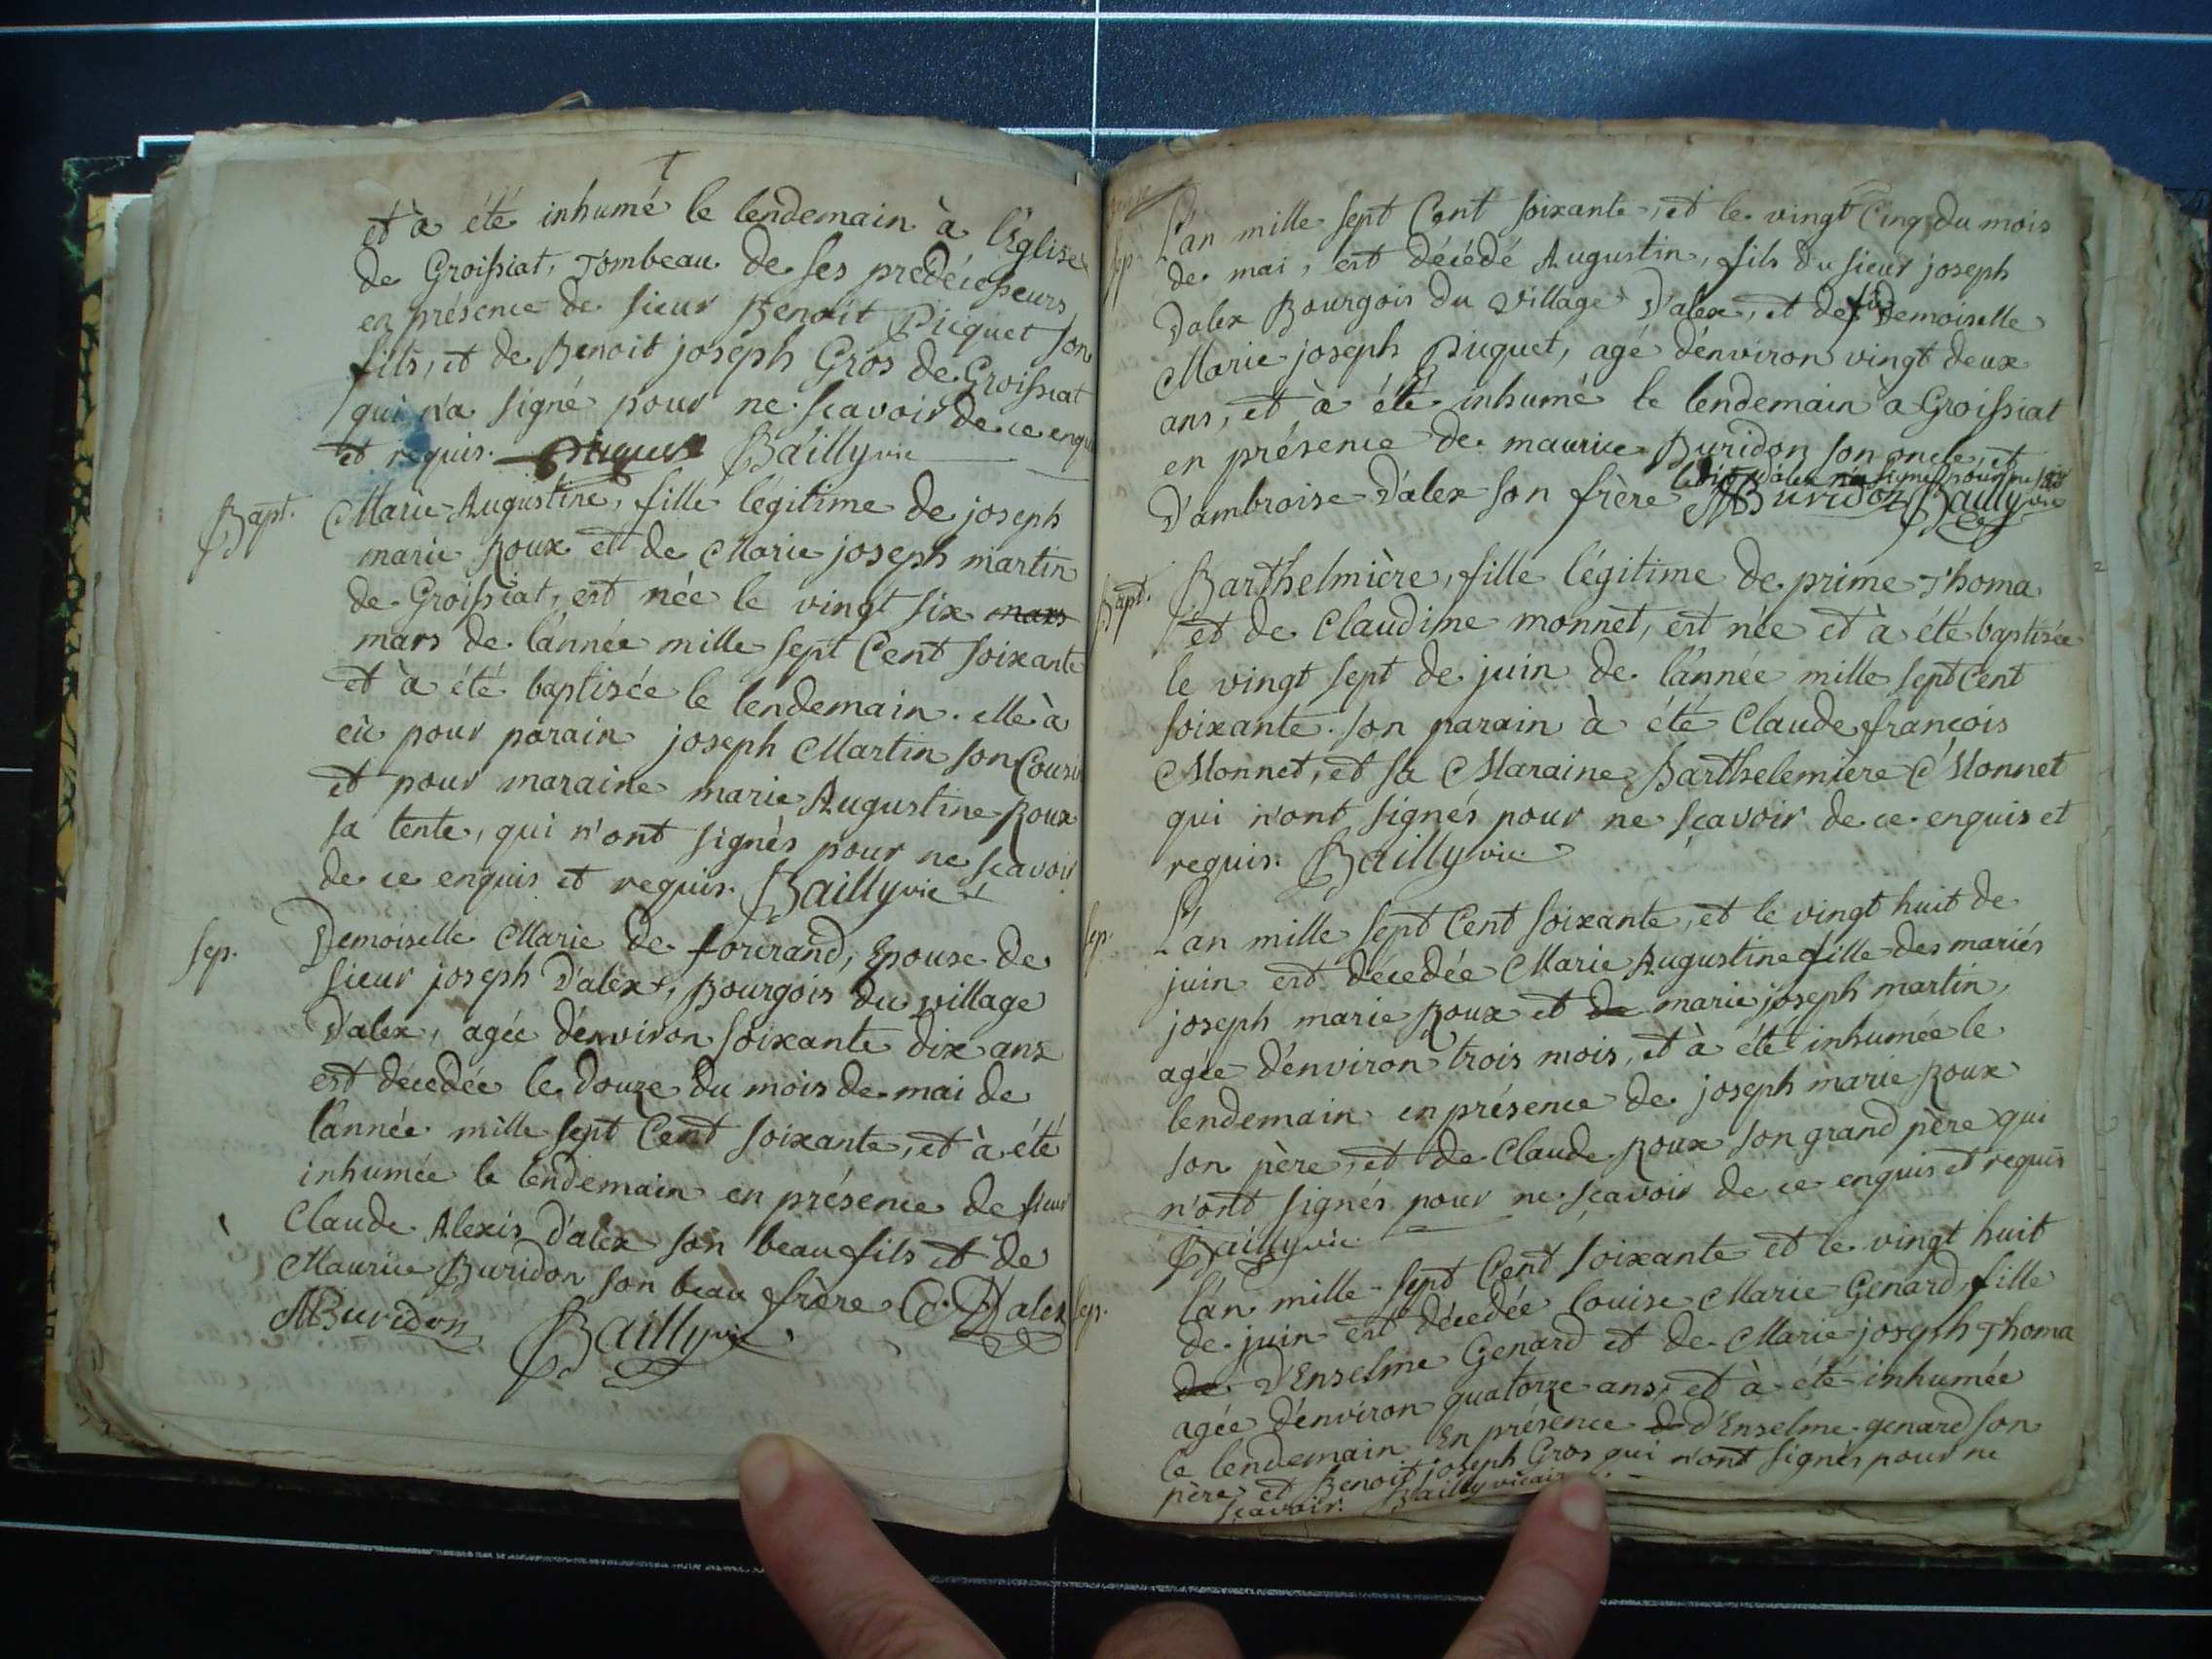 et à été inhumé le lendemain à l'Eglise
de Groissiat, Tombeau de ses predécesseurs
en présence de sieur Benoit Picquet son
fils, et de Benoit joseph Gros de Groissiat
qui n'a signé pour ne sçavoir de ce enquis
et requis. Picquet Bailly vic
Bapt. Marie Augustine, fille légitime de joseph
marie Roux et de Marie joseph martin
de Groissiat, est née le vingt six mars
mars de l'année mille sept Cent soixante
et à été baptisée le lendemain. elle à
eù pour parain joseph Martin son Cousin
et pour maraine marie Augustine Roux
sa tente, qui n'ont signés pour ne sçavoir
de ce enquis et requis. Bailly vic
sep. Demoiselle Marie de forcrand, Epouse de
sieur joseph D'alex, Bourgois du village
D'alex, agée d'environ soixante dix ans
est décedée le douze du mois de mai de
l'année mille sept Cent soixante, et à été
inhumée le lendemain en présence de sieur
Claude Alexis D'alex son beau fils et de
Maurice Buridon son beau frère C. Dalex
MBuridon Bailly vic
sep. L'an mille sept Cent soixante, et le vingt Cinq du mois
de mai, est décédé Augustin, fils du sieur joseph
Dalex Bourgois du village D'alex, et de fûe Demoiselle
Marie joseph Picquet, agé d'environ vingt deux
ans, et à été inhumé le lendemain à Groissiat
en présence de maurice Buridon son oncle, et
D'ambroise D'alex son frère MBuridon Bailly vic
Bapt. Barthelmière, fille légitime de prime Thoma
et de Claudine monnet, est née et à été baptisée
le vingt sept de juin de l'année mille sept Cent
soixante. son parain à été Claude françois
Monnet, et sa Maraine Barthelemiere Monnet
qui n'ont signés pour ne sçavoir de ce enquis et
requis. Bailly vic
sep. L'an mille sept Cent soixante, et le vingt huit de
juin est décedée Marie Augustine fille des mariés
joseph marie Roux et de marie joseph martin,
agée d'environ trois mois, et à été inhumée le
lendemain en présence de joseph marie Roux
son père, et de Claude Roux son grand père qui
n'ont signés pour ne sçavoir de ce enquis et requis
Bailly vic
sep. L'an mille sept Cent soixante et le vingt huit
de juin est décedée Louise Marie Genard, fille
de D'Enselme Genard et de Marie joseph Thoma
agée d'environ quatorze ans, et à été inhumée
le lendemain En présence de d'Enselme genard son
père et Benoit joseph Gros qui n'ont signés pour ne
sçavoir. Bailly vicair